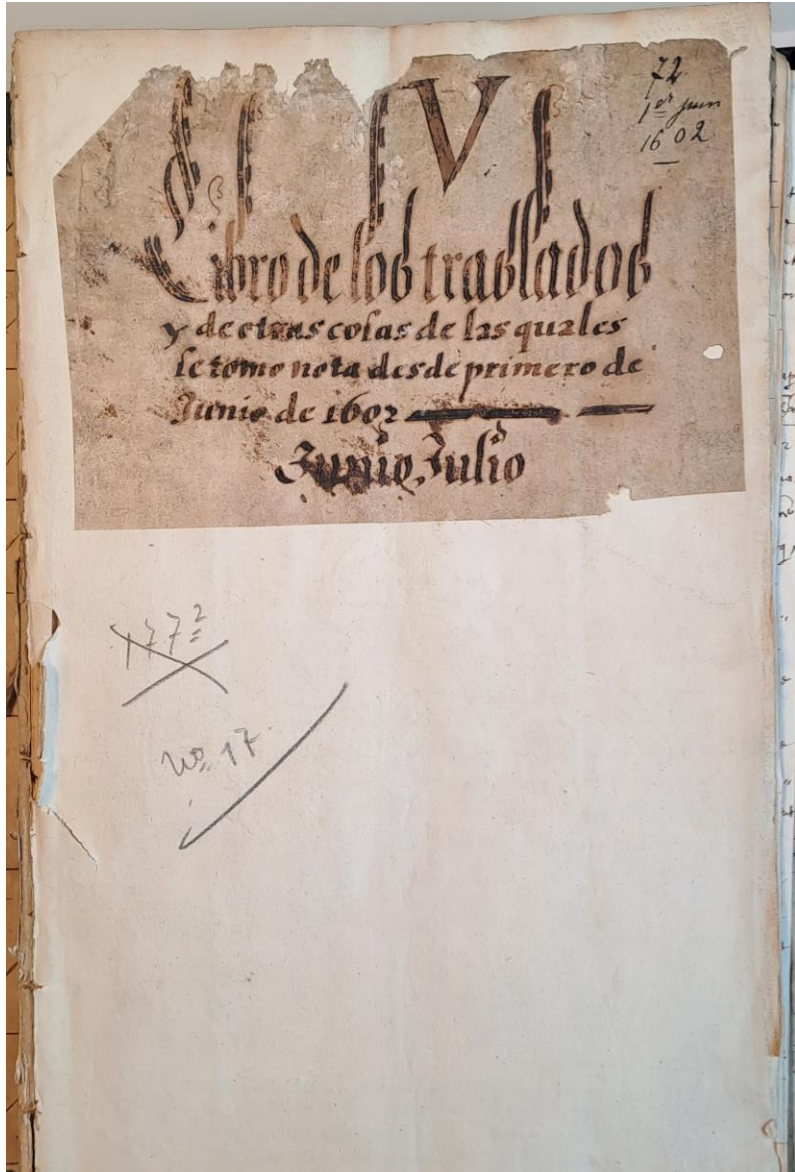 72
1er juin
1602
V
Libro de los traslados
y de otras cosas de las quales
se tomo nota desde primero de
Junio de 1602
Junio Julio
177²
No. 17